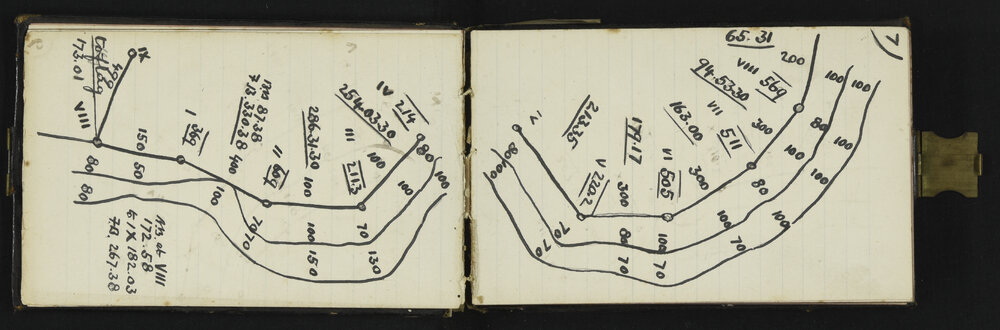 IX
499
173.01
VIII
I 369
150
80
60
80
400
100
TB 87.38
7.13.330.38
II 669
286.31.30
100
III 211.3
254.03.30
IV 214
100
80
100
100
70
70
100
150
70
130
T.B. at VIII
172.58
to IX 182.03
7A 267.38
7
65.31
200
VIII 569
94.53.30
VII 511
163.00
VI 505
171.17
V 220.2
213.35
IV
100
100
80
300
100
80
300
100
100
70
300
80
100
70
70
70
70
80
100